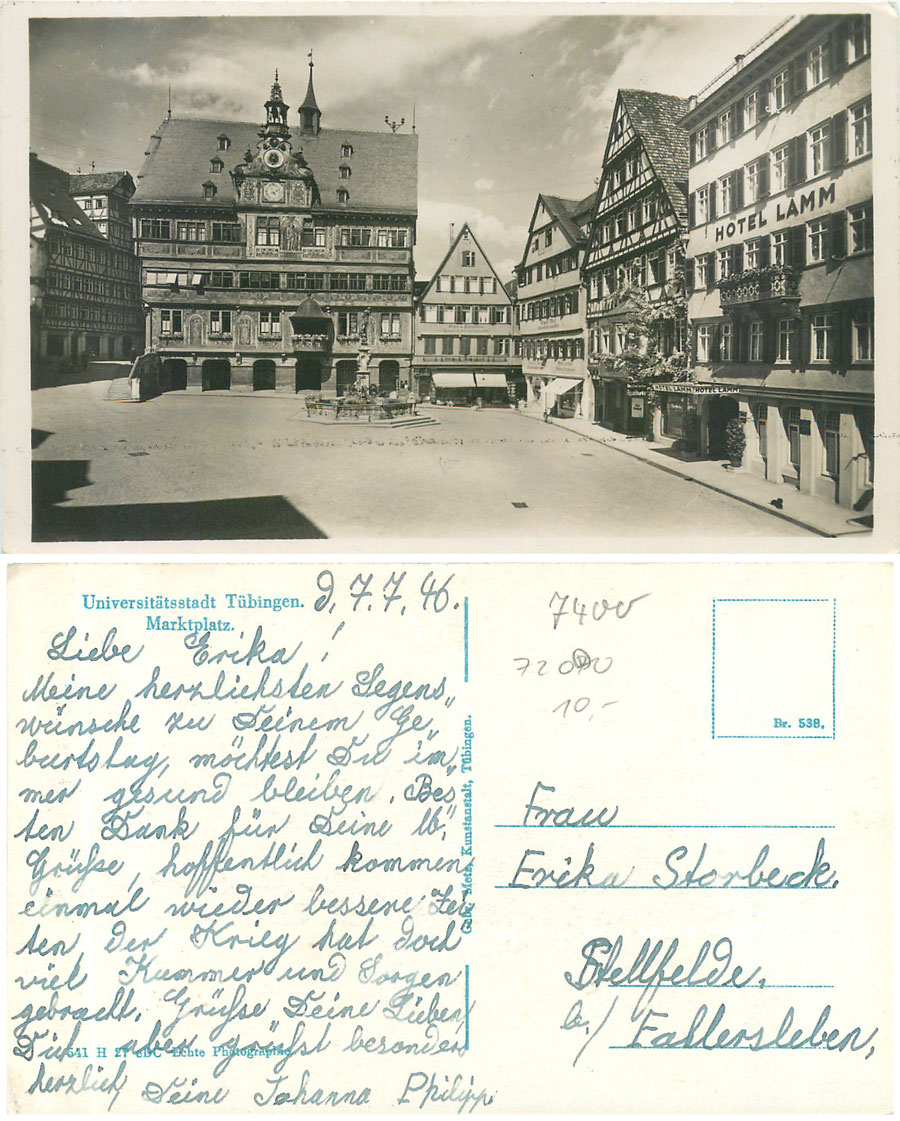 HOTEL LAMM
HOTEL LAMM HOTEL LAMM
Universitätsstadt Tübingen.
Marktplatz.
d, 7.7.46.
Liebe Erika!
Meine herzlichsten Segens„
wünsche zu Deinem Ge„
burtstag, möchtest Du im„
mer gesund bleiben. Bes„
ten Dank für Deine lb,
Grüße, hoffentlich kommen
einmal wieder bessere Zei
ten, der Krieg hat doch
viel Kummer und Sorgen
gebracht. Grüße Deine Lieben,
Dich aber grüßt besonders
herzlich, Deine Johanna Philipp
541 H 27 Echte Photographie
Gebr. Metz, Kunstanstalt, Tübingen.
7400
10,-
Br. 538.
Frau
Erika Storbeck.
Stellfelde.
b./ Fallersleben,